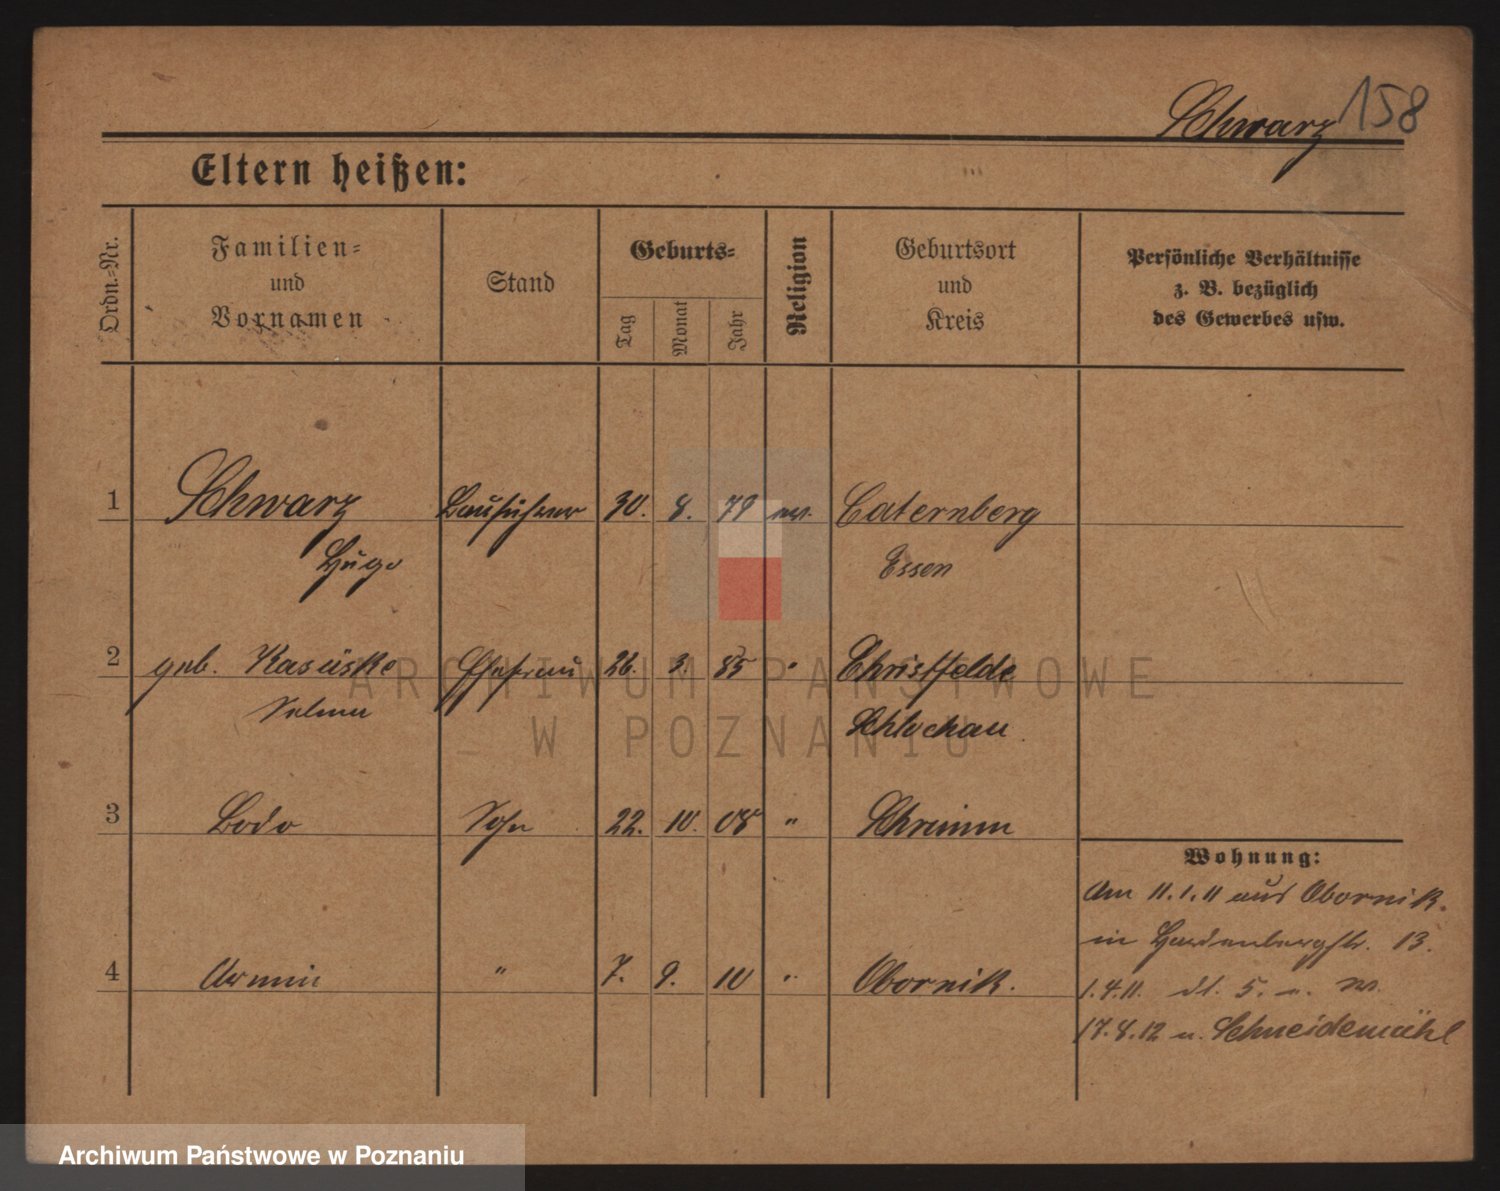 Schwarz 158
Eltern heißen:
Ordn.-Nr.
Familien-
und
Vornamen
Stand
Geburts-
Tag
Monat
Jahr
Religion
Geburtsort
und
Kreis
Persönliche Verhältnisse
z. B. bezüglich
des Gewerbes usw.
1 Schwarz Bauführer 30. 8. 79 ev. Caternberg
Hugo Essen
2 geb. Kasüske Ehefrau 26. 3. 85 " Christfelde
Selma Schlochau
3 Bodo Sohn 22. 10. 08 " Schrimm
Wohnung:
Am 11.1.11 aus Obornik.
in Hardenbergstr. 13.
4 Armin " 7. 9. 10 " Obornik.
1.4.11. dt. 5.
17.8.12 n. Schneidemühl
ARCHIWUM PAŃSTWOWE
W POZNANIU
Archiwum Państwowe w Poznaniu